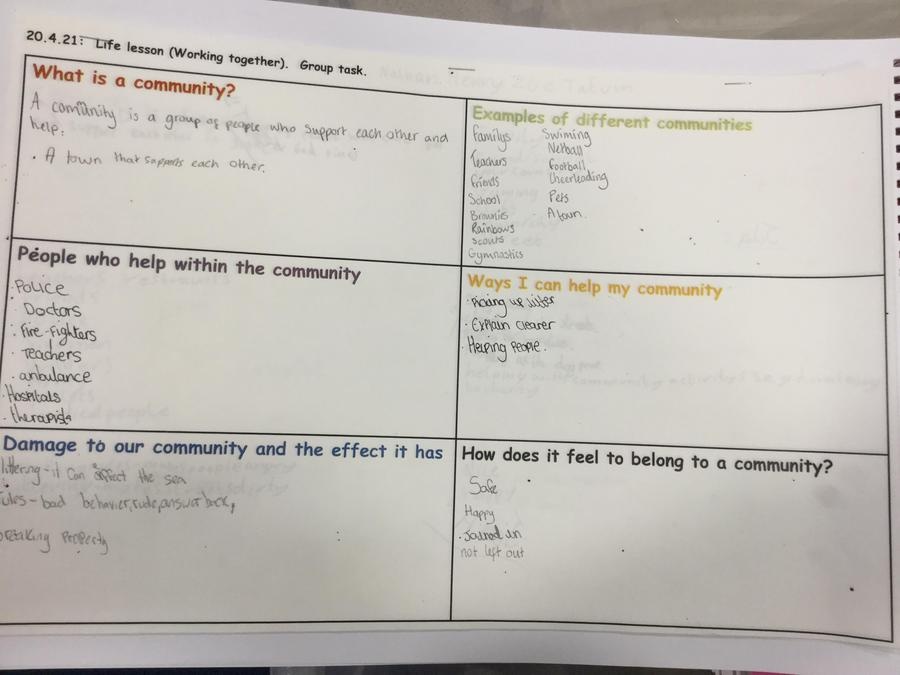 20.4.21: Life lesson (Working together). Group task.
What is a community?
A community is a group of people who support each other and
help.
· A town that supports each other.
Examples of different communities
familys Swiming
Netball
Teachers football
friends Cheerleading
School Pets
Brownies A town.
Rainbows
scouts
Gymnastics
People who help within the community
·Police
Doctors
: Fire-fighters
· Teachers
· anbulance
·Hospitals
· therapists
Ways I can help my community
·Picking up litter
· Explain clearer
·Helping People.
Damage to our community and the effect it has
littering-it can affect the sea
rules-bad behavier,rude,answer back,
breaking Property
How does it feel to belong to a community?
Safe
Happy
·Joined in
not left out